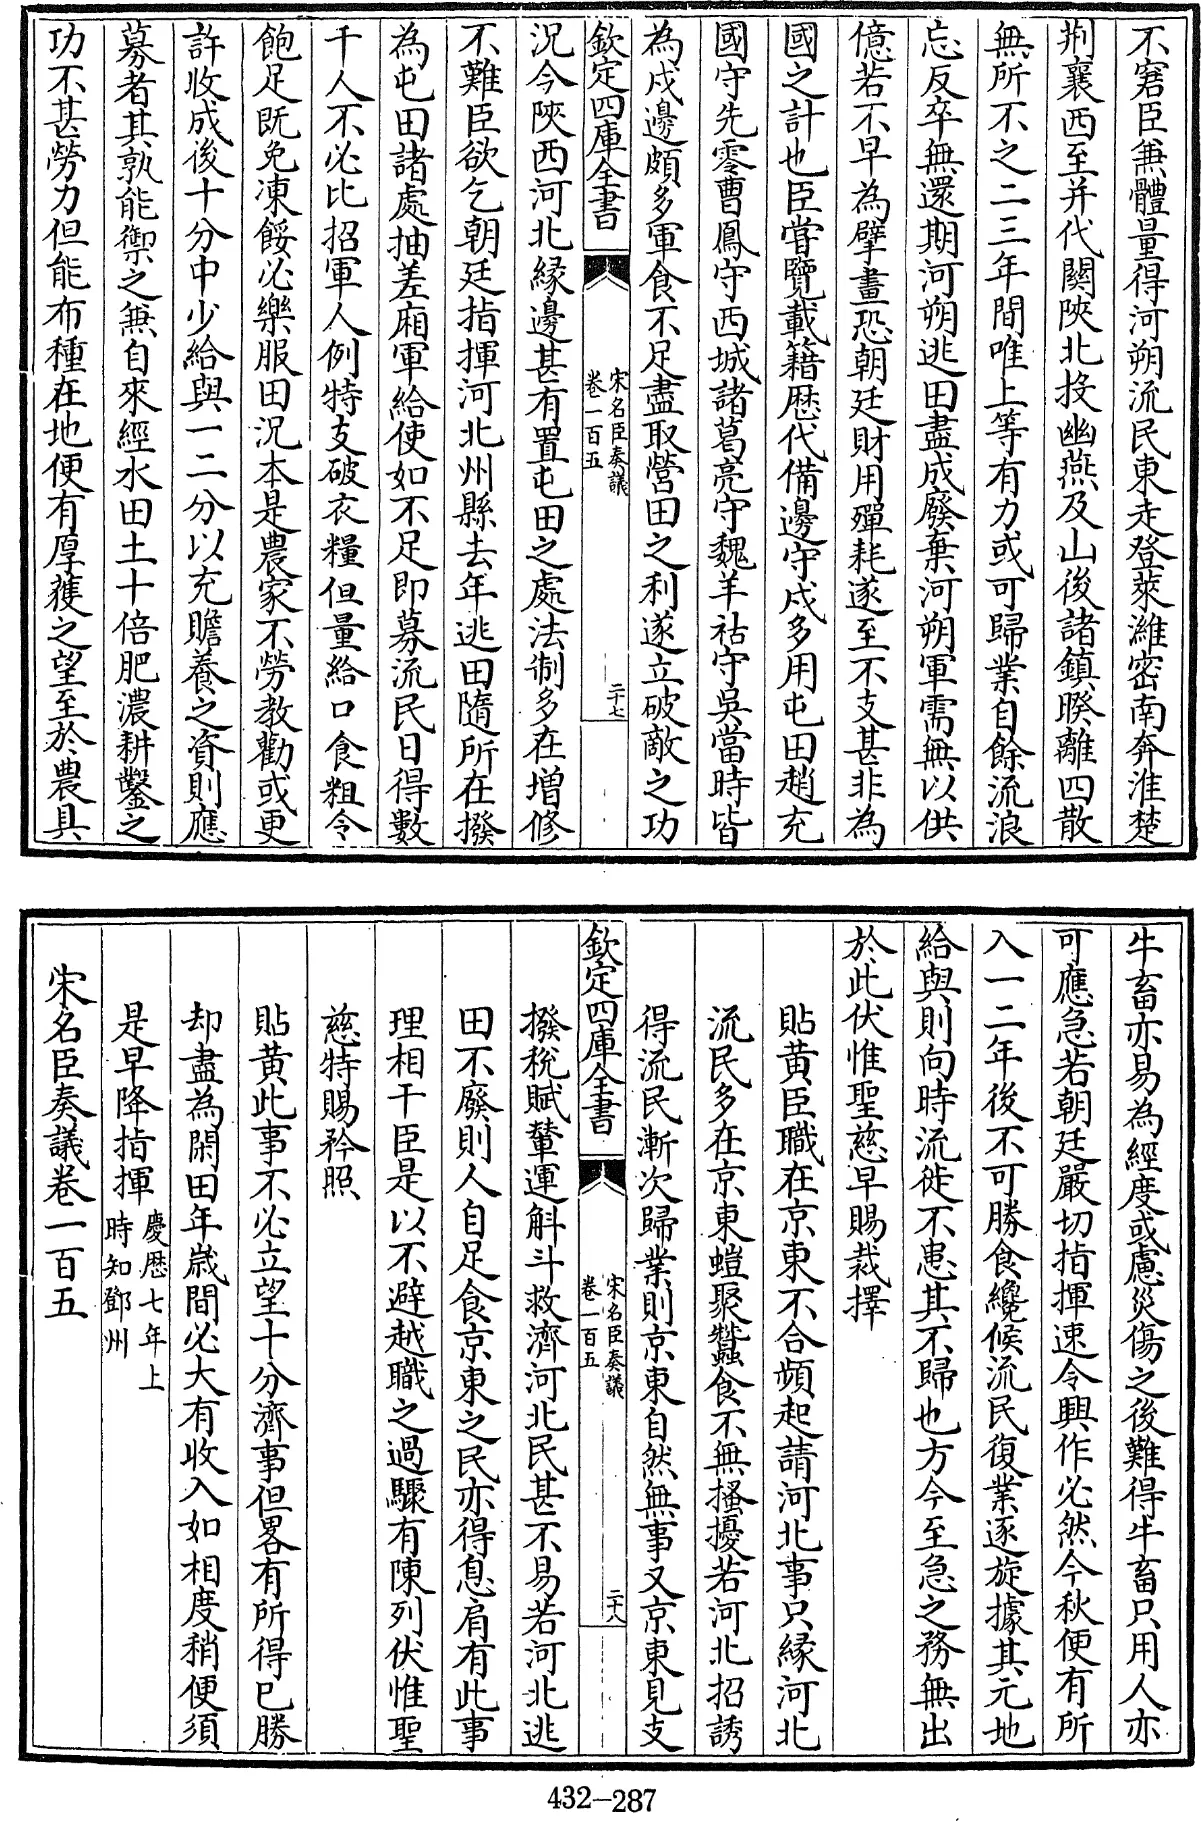 不窘臣無體量得河朔流民東走登萊濰密南奔淮楚
荆襄西至并代關陜北投幽燕及山後諸鎮暌離四散
無所不之二三年間唯上等有力或可歸業自餘流浪
忘反卒無還期河朔逃田盡成廢棄河朔軍需無以供
億若不早為擘畫恐朝廷財用殫耗遂至不支甚非為
國之計也臣嘗覽載籍歴代備邊守戍多用屯田趙充
國守先零曹鳳守西城諸葛亮守魏羊祜守吳當時皆
為戍邊頗多軍食不足盡取營田之利遂立破敵之功
欽定四庫全書
宋名臣奏議
卷一百五
二十七
況今陜西河北緣邊甚有置屯田之處法制多在增修
不難臣欲乞朝廷指揮河北州縣去年逃田隨所在撥
為屯田諸處抽差廂軍給使如不足即募流民日得數
千人不必比招軍人例特支破衣糧但量給口食粗令
飽足既免凍餒必樂服田況本是農家不勞教勸或更
許收成後十分中少給與一二分以充贍養之資則應
募者其孰能禦之無自來經水田土十倍肥濃耕鑿之
功不甚勞力但能布種在地便有厚獲之望至於農具
牛畜亦易為經度或慮災傷之後難得牛畜只用人亦
可應急若朝廷嚴切指揮速令興作必然今秋便有所
入一二年後不可勝食纔候流民復業逐旋據其元地
給與則向時流徙不患其不歸也方今至急之務無出
於此伏惟聖慈早賜裁擇
貼黄臣職在京東不合頻起請河北事只緣河北
流民多在京東螘聚蠶食不無搔擾若河北招誘
得流民漸次歸業則京東自然無事又京東見支
欽定四庫全書
宋名臣奏議
卷一百五
二十八
撥稅賦輦運斛斗救濟河北民甚不易若河北逃
田不廢則人自足食京東之民亦得息肩有此事
理相干臣是以不避越職之過驟有陳列伏惟聖
慈特賜矜照
貼黄此事不必立望十分濟事但畧有所得已勝
却盡為閑田年嵗間必大有收入如相度稍便須
是早降指揮
慶歴七年上
時知鄧州
宋名臣奏議卷一百五
432-287